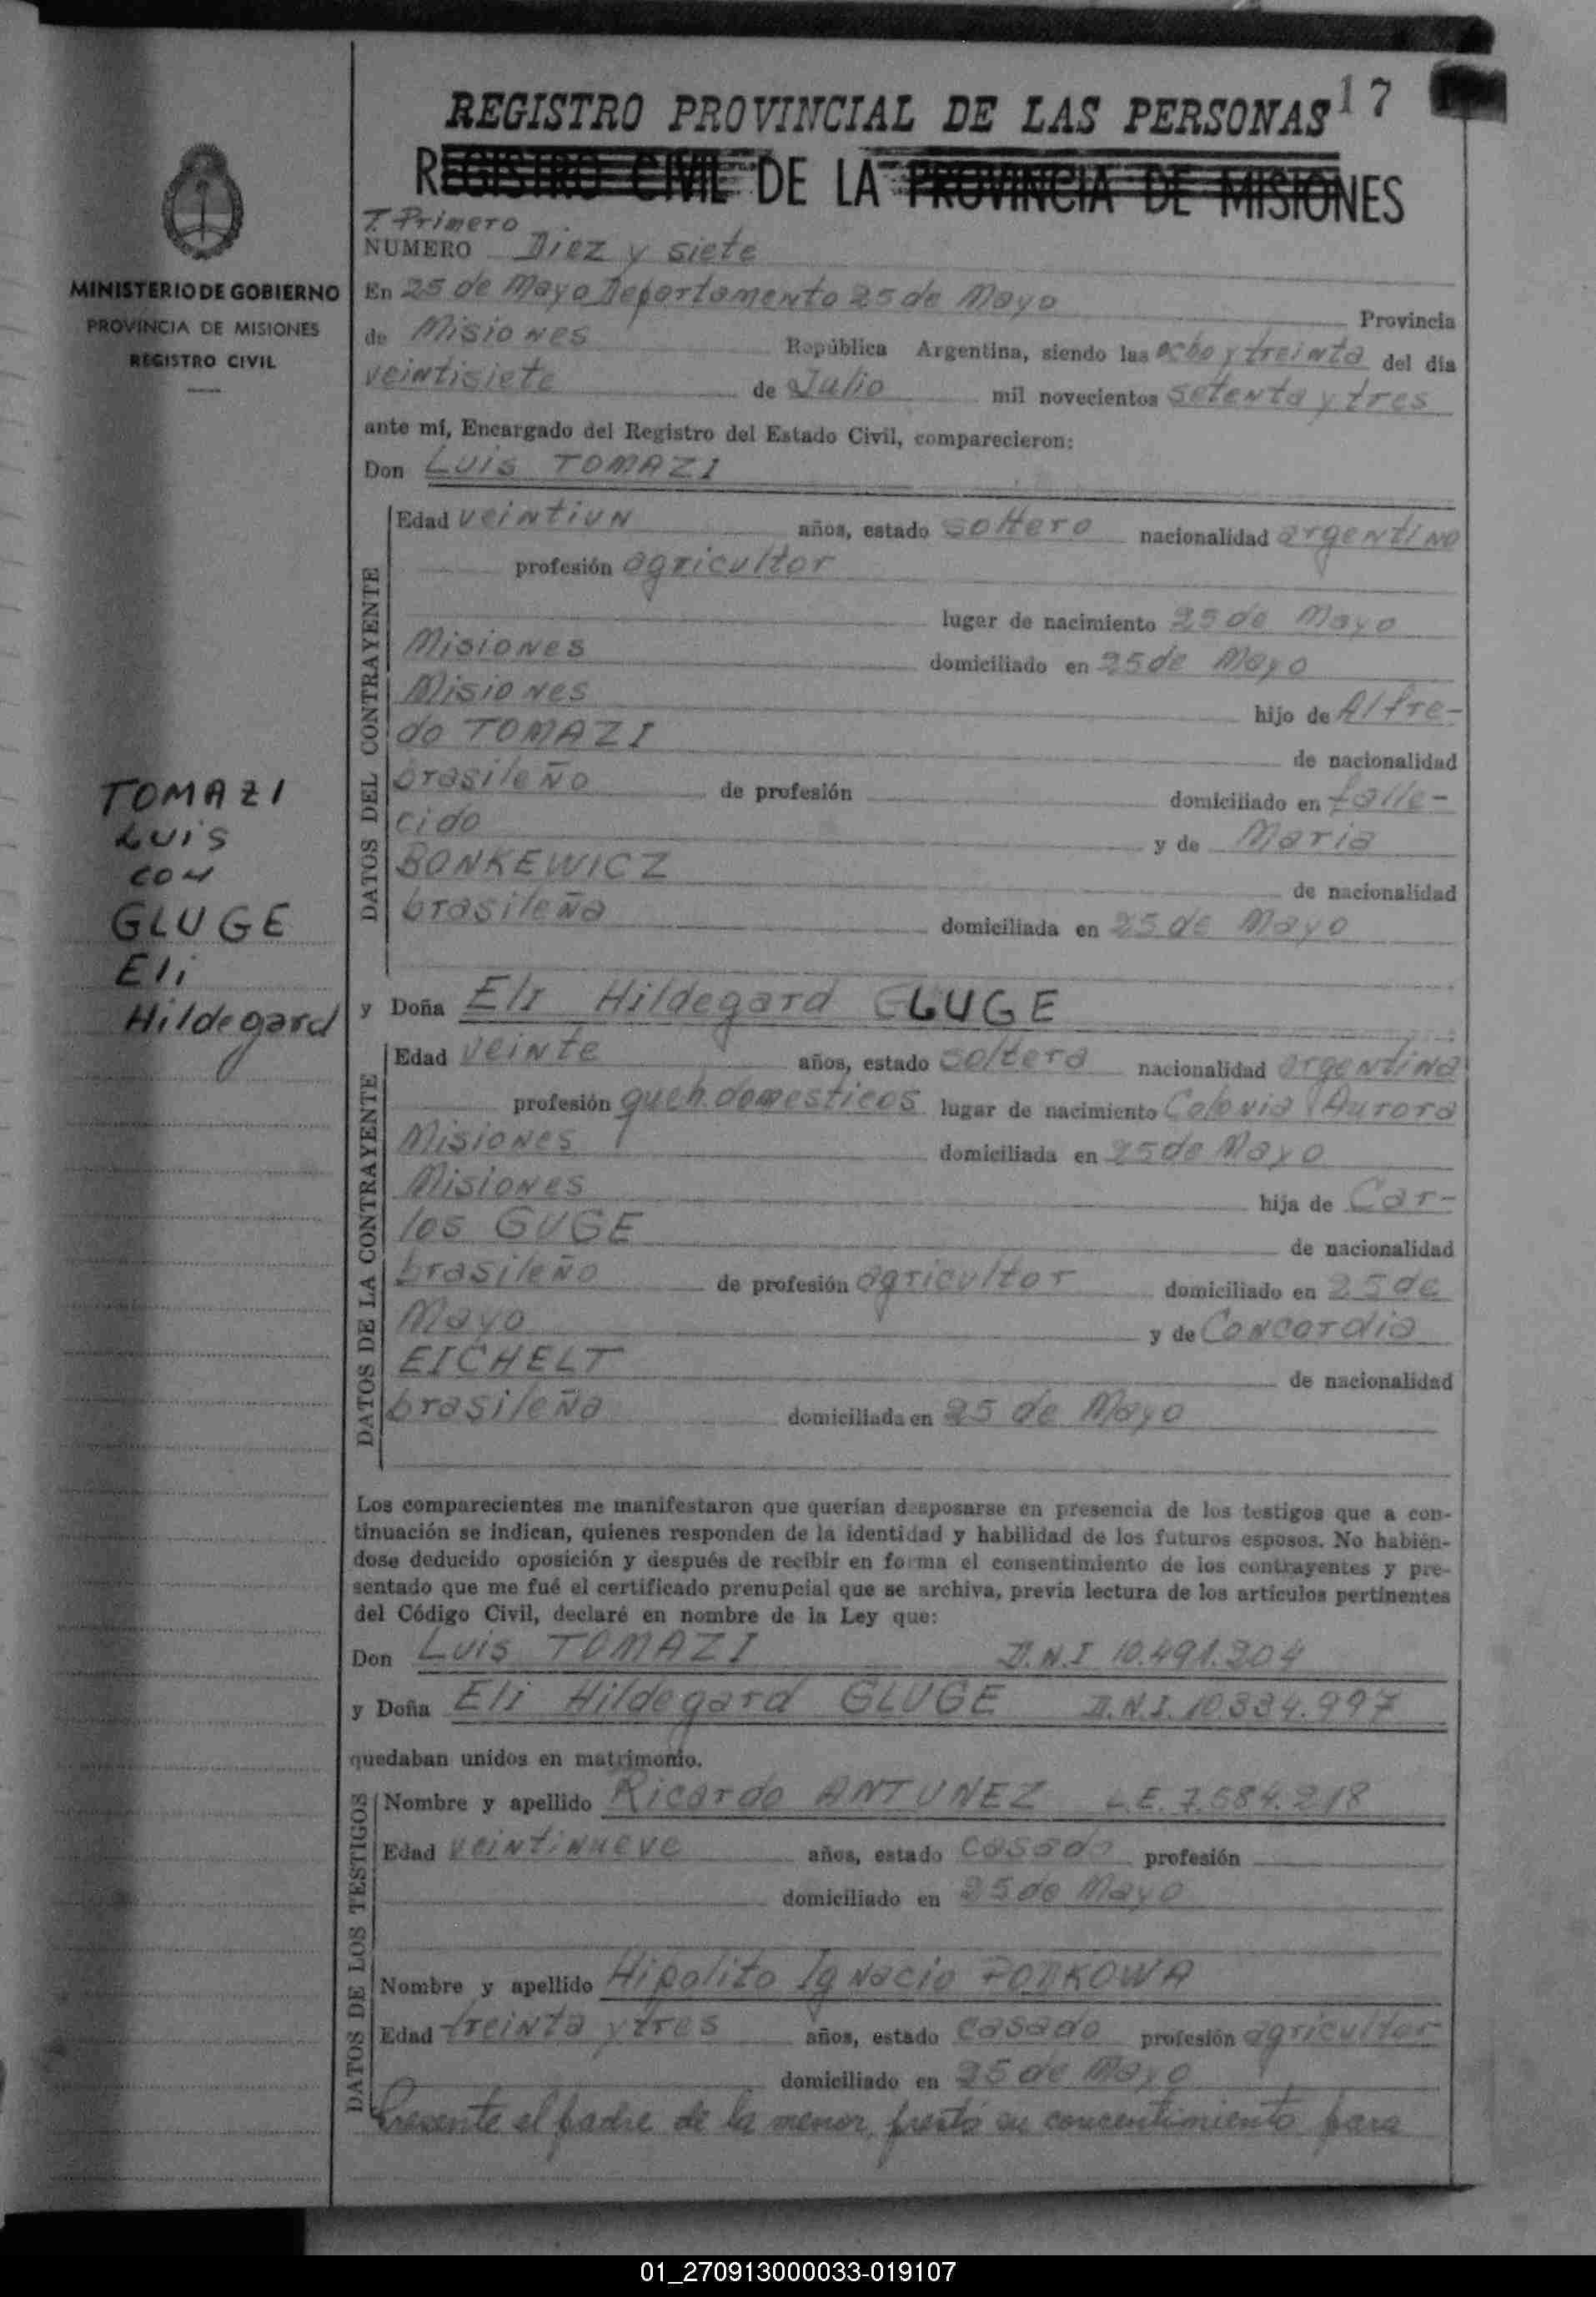 REGISTRO PROVINCIAL DE LAS PERSONAS 17
REGISTRO CIVIL DE LA PROVINCIA DE MISIONES
MINISTERIO DE GOBIERNO
PROVINCIA DE MISIONES
REGISTRO CIVIL
TOMAZI
Luis
con
GLUGE
Eli
Hildegard
T. Primero
NUMERO Diez y siete
En 25 de Mayo Departamento 25 de Mayo Provincia
de Misiones República Argentina, siendo las ocho y treinta del día
veintisiete de Julio mil novecientos setenta y tres
ante mí, Encargado del Registro del Estado Civil, comparecieron:
Don Luis TOMAZI
DATOS DEL CONTRAYENTE
Edad veintiun años, estado soltero nacionalidad argentino
profesión agricultor
lugar de nacimiento 25 de Mayo
Misiones domiciliado en 25 de Mayo
Misiones hijo de Alfre-
do TOMAZI de nacionalidad
brasileño de profesión domiciliado en falle-
cido y de Maria
BONKEWICZ de nacionalidad
brasileña domiciliada en 25 de Mayo
y Doña Eli Hildegard GLUGE
DATOS DE LA CONTRAYENTE
Edad veinte años, estado soltera nacionalidad argentina
profesión queh. domesticos lugar de nacimiento Colonia Aurora
Misiones domiciliada en 25 de Mayo
Misiones hija de Car-
los GUGE de nacionalidad
brasileño de profesión agricultor domiciliado en 25 de
Mayo y de Concordia
EICHELT de nacionalidad
brasileña domiciliada en 25 de Mayo
Los comparecientes me manifestaron que querían desposarse en presencia de los testigos que a con-
tinuación se indican, quienes responden de la identidad y habilidad de los futuros esposos. No habién-
dose deducido oposición y después de recibir en forma el consentimiento de los contrayentes y pre-
sentado que me fué el certificado prenupcial que se archiva, previa lectura de los artículos pertinentes
del Código Civil, declaré en nombre de la Ley que:
Don Luis TOMAZI D.N.I 10.491.204
y Doña Eli Hildegard GLUGE D.N.I. 10.334.997
quedaban unidos en matrimonio.
DATOS DE LOS TESTIGOS
Nombre y apellido Ricardo ANTUNEZ L.E. 7.584.218
Edad veintinueve años, estado casado profesión
domiciliado en 25 de Mayo
Nombre y apellido Hipolito Ignacio PODKOWA
Edad treinta y tres años, estado casado profesión agricultor
domiciliado en 25 de Mayo
Presente el padre de la menor, prestó su concentimiento para
01_270913000033-019107